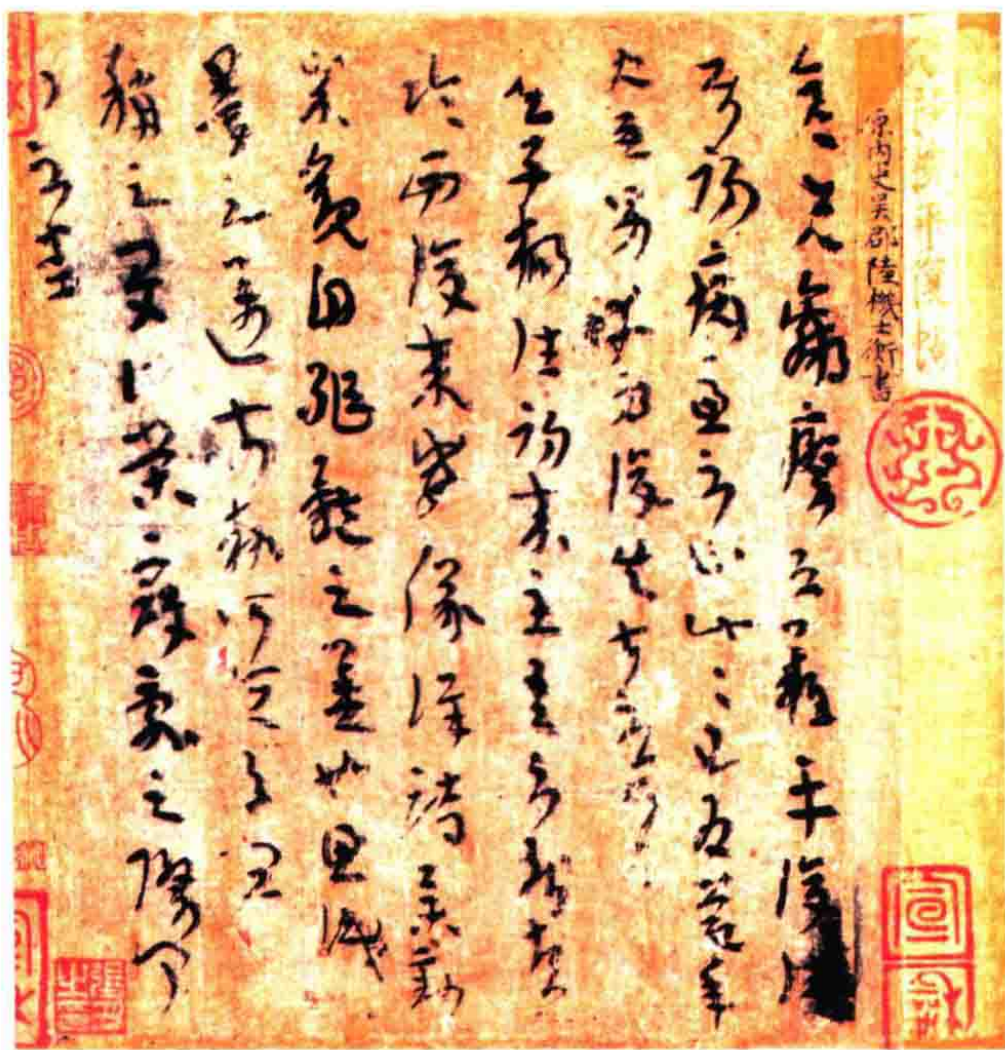 原內史吳郡陸機士衡書
彥先羸瘵恐難平復往
屬初病慮不止此此已為慶承
使唯男幸為復失前憂耳
吳子楊往初來主吾不能盡
臨西復來威儀詳跱舉動
成觀自軀體之美也思識
量之邁前勢所恒有宜
稱之夏伯榮寇亂之際聞
問不悉